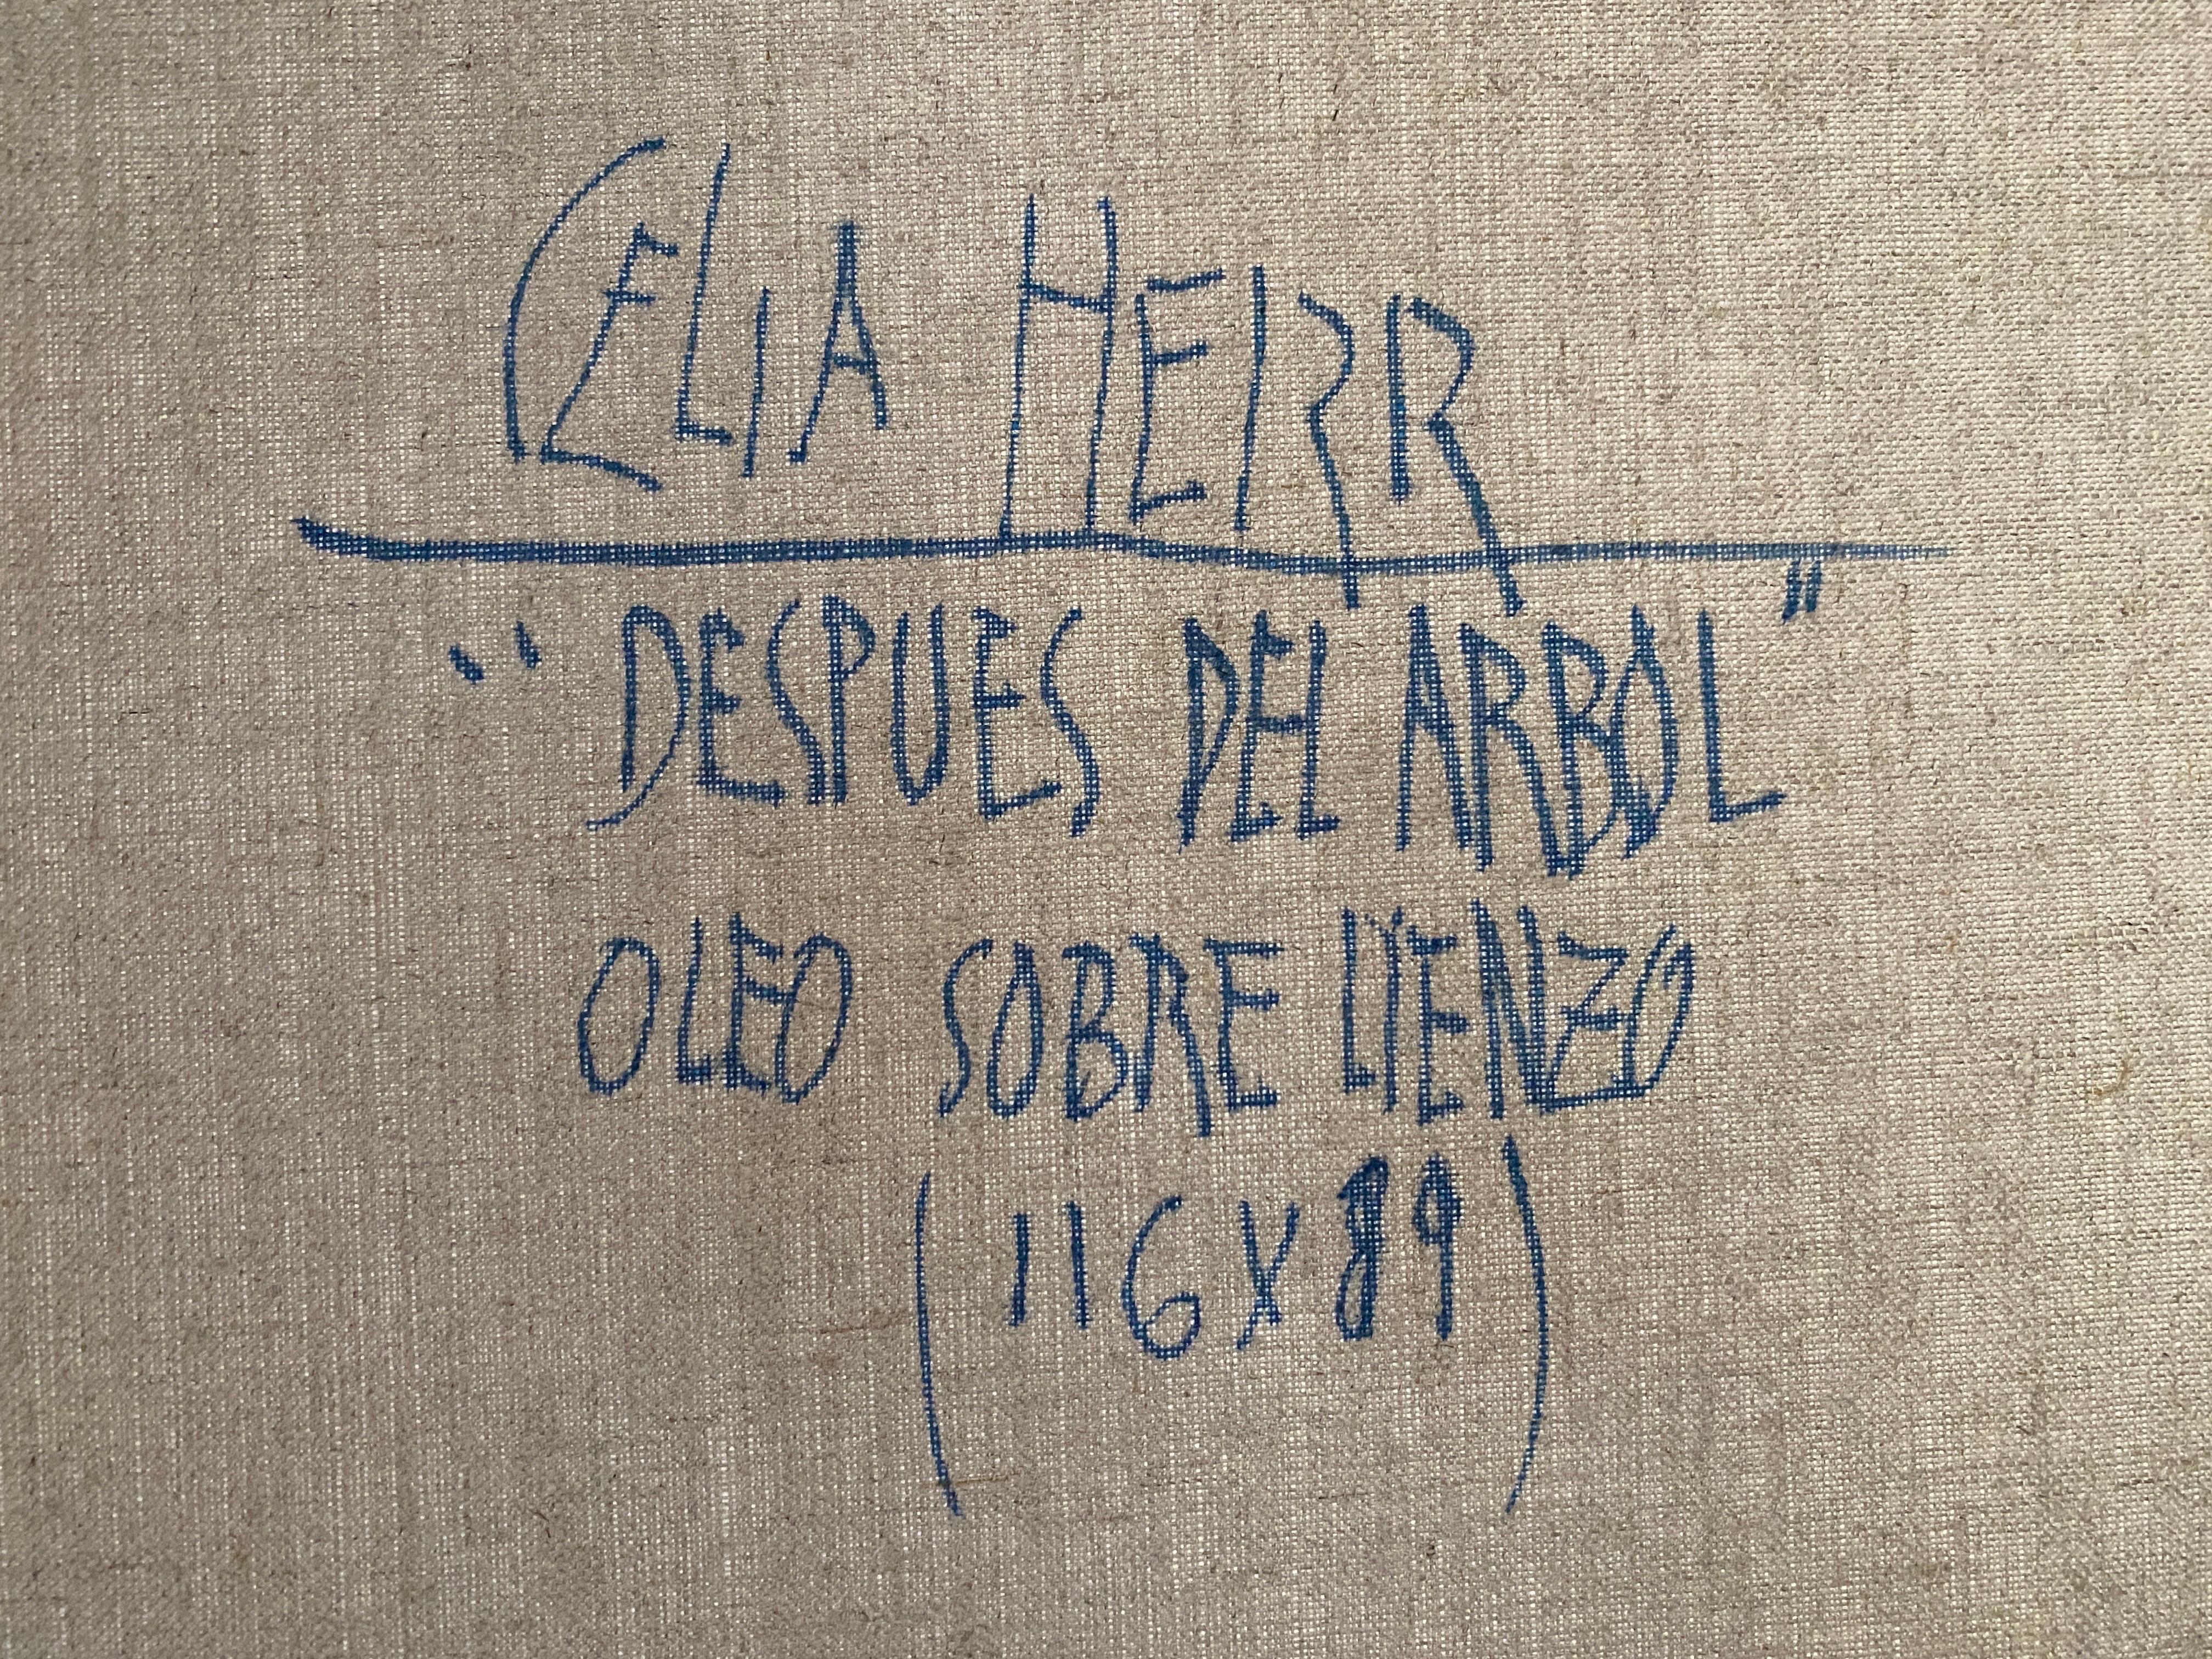 CELIA HERR
"DESPUES DEL ARBOL"
OLEO SOBRE LIENZO
(116 X 89)